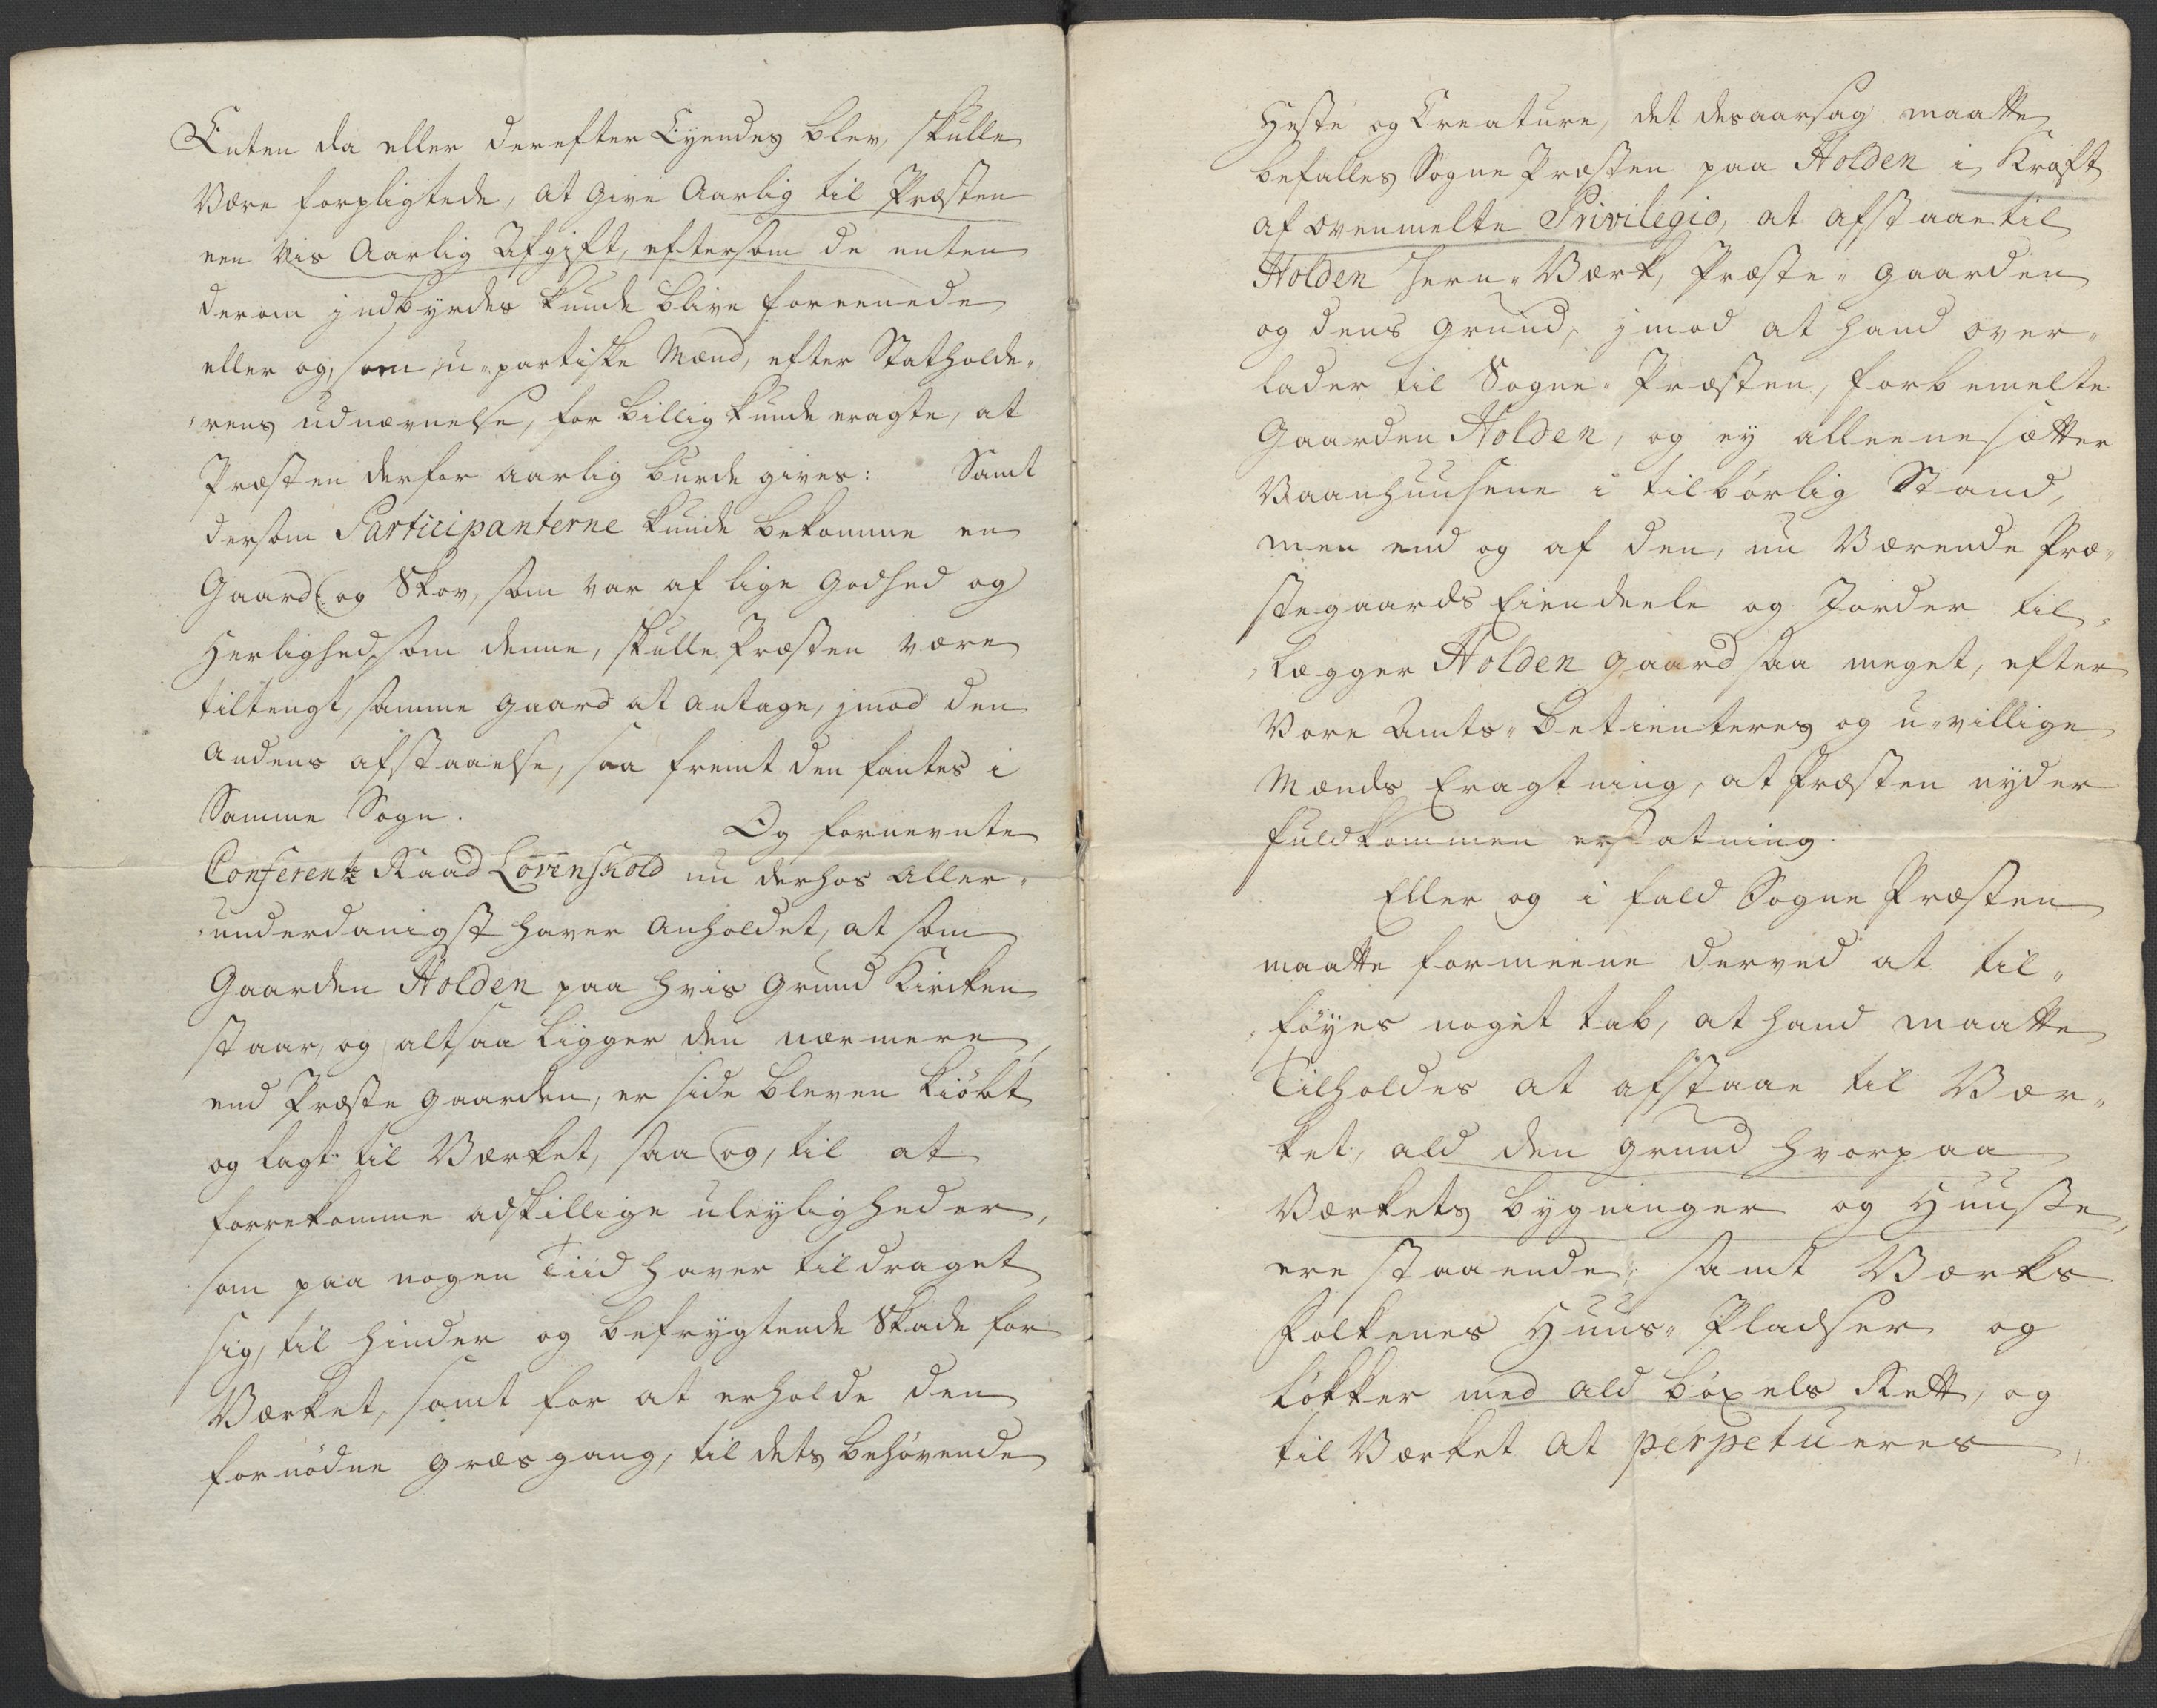 Enten da eller derefter Eyendes blev, skulle
Være forpligtede, at give Aarlig til Præsten
een vis Aarlig Afgift, eftersom de enten
derom indbyrdes kunde blive foreenede
eller og, som u-partiske Mænd, efter Statholde-
rens udnævnelse, for billig kunde eragte, at
Præsten derfor aarlig burde gives: Samt
dersom Participanterne kunde bekomme en
Gaard og Skov, som var af lige Godhed og
Herlighed som denne, skulle Præsten være
tiltengt, samme gaard at antage, jmod den
Andens afstaaelse, saa fremt den fantes i
Samme Sogn. Og fornevnte
Conferentz Raad Lövenskold nu derhos aller-
underdanigst haver anholdet, at som
Gaarden Holden paa hvis Grund Kircken
staar, og altsaa ligger den nærmere,
end Præste gaarden, er side bleven kiöbt
og lagt til Værket, saa og, til at
forrekomme adskillige uleyligheder,
som paa nogen Tiid haver tildraget
sig, til hinder og befrygtende Skade for
Værket, samt for at erholde den
fornödne græsgang, til dets behövende
Heste og Creature, det desaarsag maatte
befalles Sogne Præsten paa Holden i Kraft
af ovenmelte Privilegio, at afstaae til
Holden Jern-Værk, Præste-gaarden
og dens grund, jmod at hand over-
lader til Sogne-Præsten, forbemelte
Gaarden Holden, og ey alleene sætter
Vaanhuusene i tilbörlig Stand,
men end og af den, nu Værende Præ-
stegaards Eiendeele og Jorder til-
lægger Holden gaard saa meget, efter
Vore Amts-betienteres og u-villige
Mænds Eragtning, at Præsten nyder
fuldkommen erstatning.
Eller og i fald Sogne Præsten
maatte formeene derved at til-
föyes noget tab, at hand maatte
Tilholdes at afstaae til Vær-
ket, ald den grund hvorpaa
Værkets bygninger og Huuse,
ere staaende, samt Værks
folkenes Huus-Pladser og
lökker med ald böxels Rett, og
til Værket at perpetueres